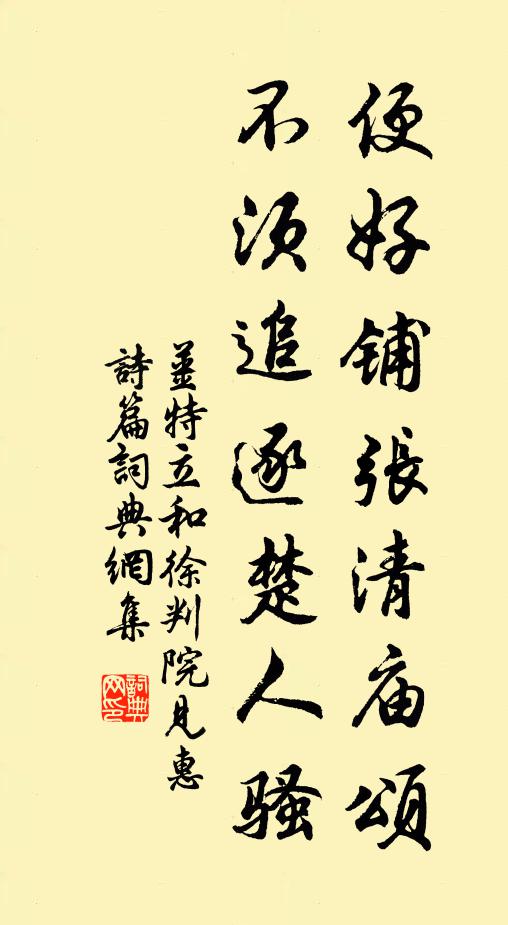 便好铺張清庙頌
不须追逐楚人骚
姜特立和徐判院見惠
詩篇詞典網集
詞典网印